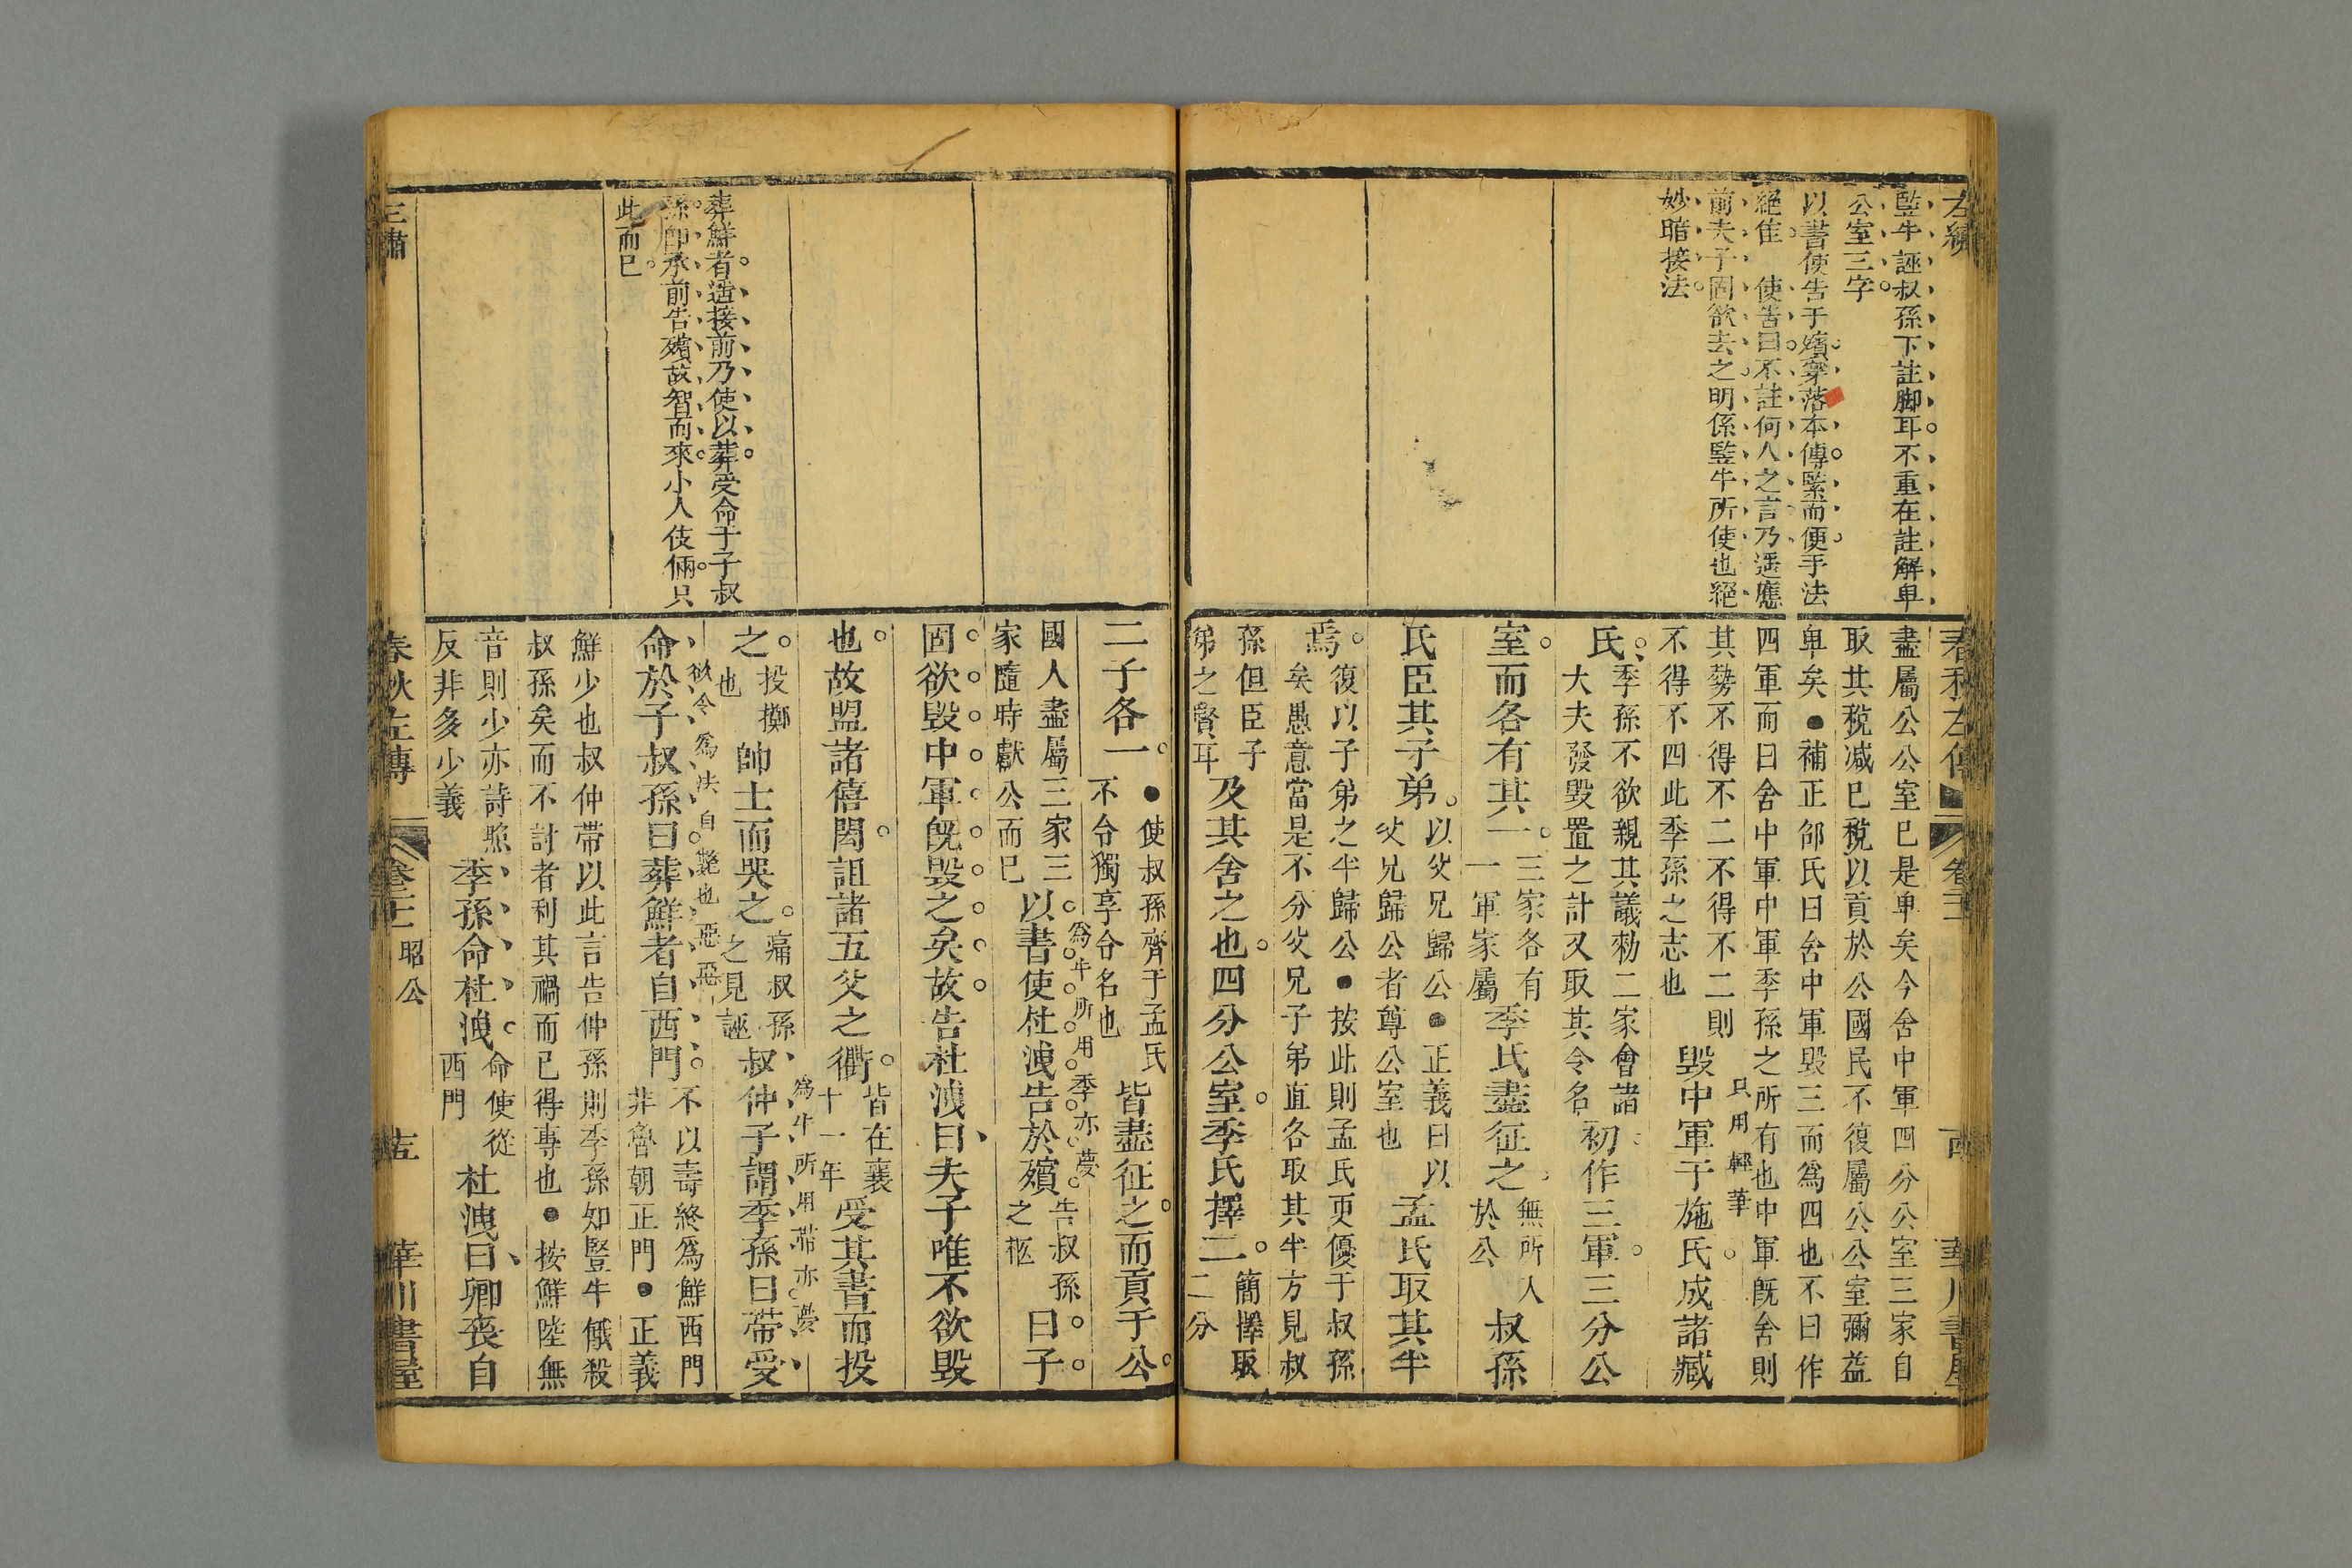 左繡
監牛誣叔孫下註脚耳不重在註解卑
公室三字
以書使告于殯穿落本傳緊而便手法
絕佳　使告曰不註何人之言乃遥應
前夫子固欲去之明係監牛所使也絕
妙暗接法
春秋左傳
卷二
華川書屋
盡屬公公室已是卑矣今舍中軍四分公室三家自
取其稅减已稅以貢於公國民不復屬公公室彌益
卑矣●補正邰氏曰舍中軍毀三而爲四也不曰作
四軍而曰舍中軍中軍季孫之所有也中軍既舍則
其勢不得不二不得不二則
不得不四此季孫之志也
只用輕筆
毀中軍于施氏成諸臧
氏
季孫不欲親其議勑二家會諸
大夫發毀置之計又取其令名
初作三軍三分公
室而各有其一
三家各有
一軍家屬
季氏盡征之
無所入
於公
叔孫
氏臣其子弟
以父兄歸公●正義曰以
父兄歸公者尊公室也
孟氏取其半
焉
復以子弟之半歸公●按此則孟氏更優于叔孫
矣愚意當是不分父兄子弟直各取其半方見叔
孫但臣子
弟之賢耳
及其舍之也四分公室季氏擇二
簡擇取
二分
二子各一
●使叔孫齊于孟氏
不令獨享令名也
皆盡征之而貢于公
國人盡屬三家三
家隨時獻公而已
爲牛所用季亦夢
以書使杜洩告於殯
告叔孫
之柩
曰子
固欲毀中軍既毀之矣故告杜洩曰夫子唯不欲毀
也故盟諸僖閎詛諸五父之衢
皆在襄
十一年
受其書而投
之
投擲
也
帥士而哭之
痛叔孫
之見誣
爲牛所用帶亦夢
叔仲子謂季孫曰帶受
欲令爲法自斃也惡惡
命於子叔孫曰葬鮮者自西門
不以壽終爲鮮西門
非魯朝正門●正義
鮮少也叔仲帶以此言告仲孫則季孫知豎牛餓殺
叔孫矣而不討者利其禍而已得專也●按鮮陸無
音則少亦詩照
反非多少義
季孫命杜洩
命使從
西門
杜洩曰卿喪自
葬鮮者遥接前乃使以葬受命于子叔
孫即承前告殯故智而來小人伎倆只
此而已
春秋左傳
昭公
華川書屋